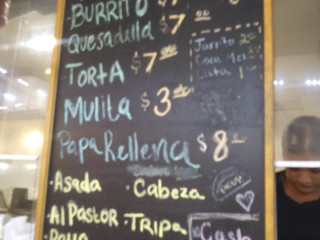 BURRITO $7
Quesadilla $7 00
Jarrito 2
TORTA $7 00
Coca Mex
Lata 1
Mulita $3
Papa Rellena $8
·Asada ·Cabeza
·Al Pastor ·Tripa
Cash